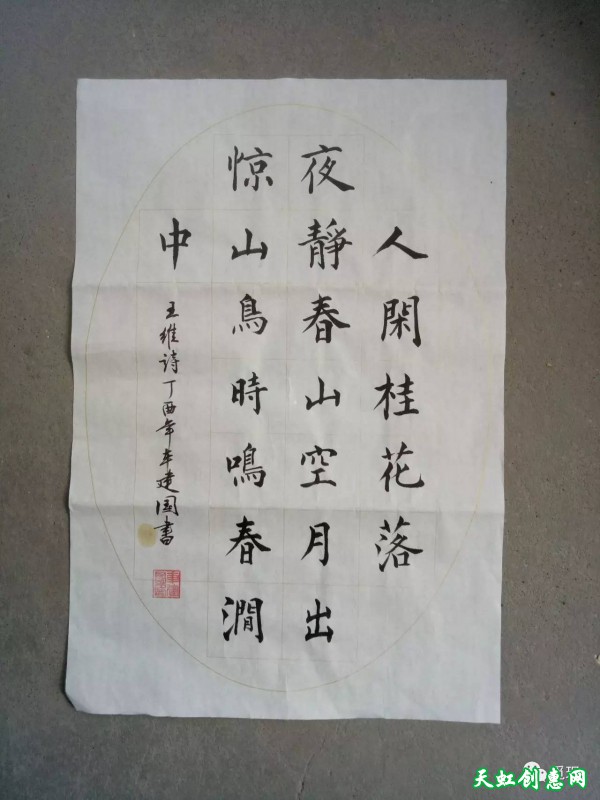 人閑桂花落
夜靜春山空月出
惊山鳥時鳴春澗
中
王维诗丁酉年车建国書
天虹创惠网